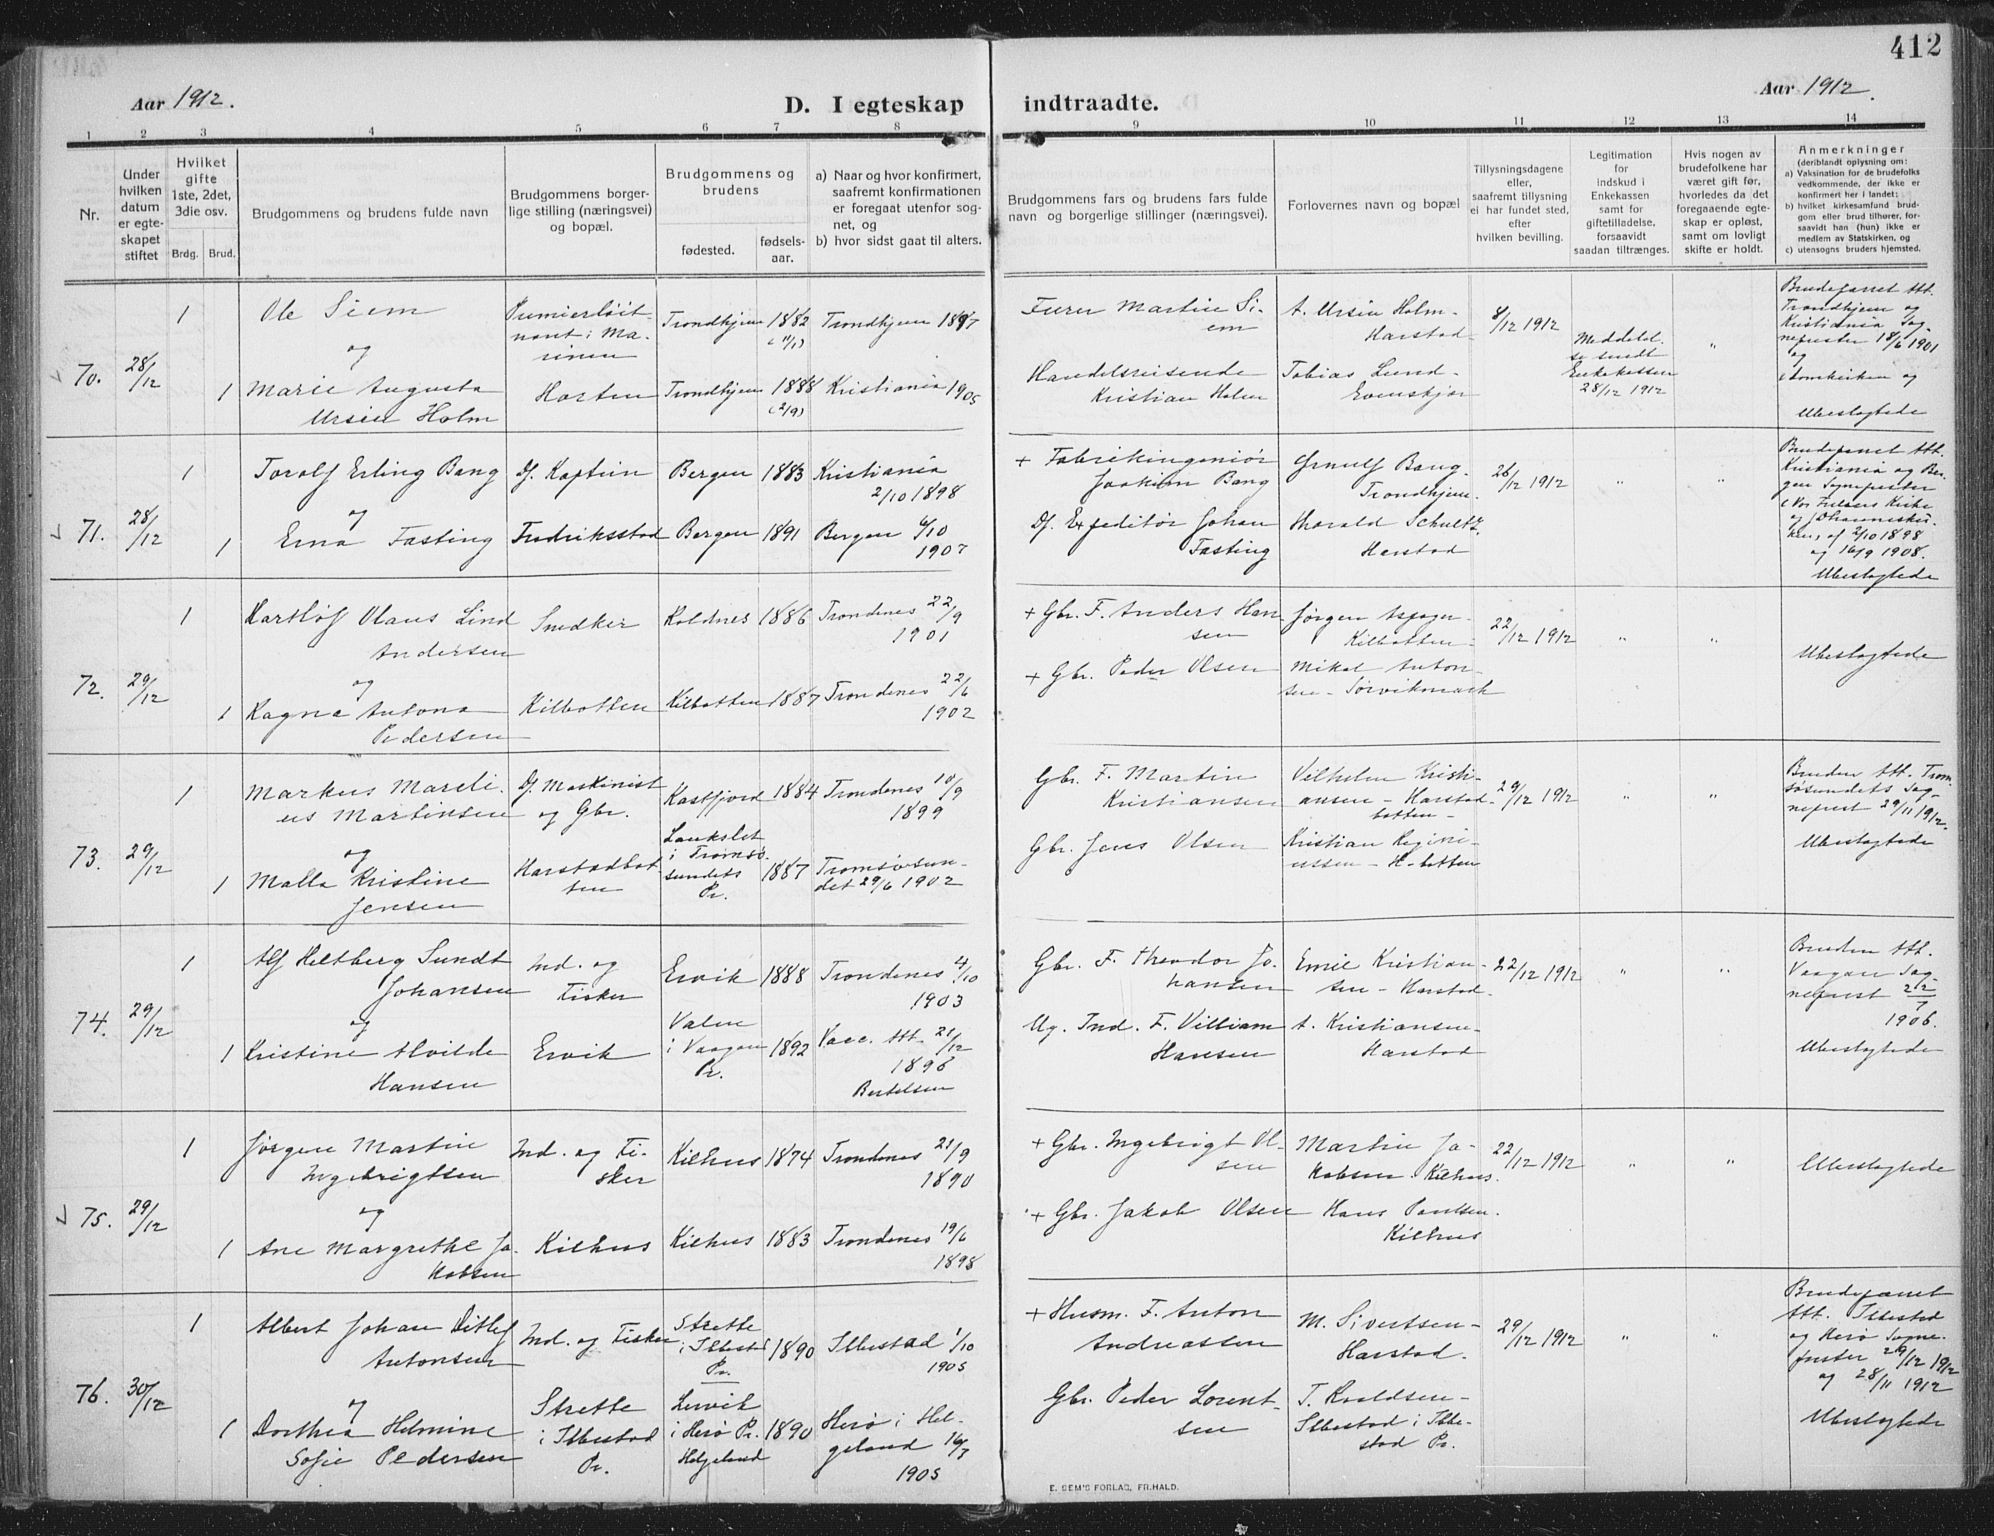 412
Aar 1912.
D. I egteskap indtraadte.
Aar 1912.
1 2 3 4 5 6 7 8 9 10 11 12 13 14
Nr.
Under hvilken datum er egteskapet stiftet
Hvilket gifte 1ste, 2det, 3die osv.
Brdg. Brud.
Brudgommens og brudens fulde navn
Brudgommens borgerlige stilling (næringsvei) og bopæl.
Brudgommens og brudens
fødested. fødselsaar.
a) Naar og hvor konfirmert, saafremt konfirmationen er foregaat utenfor sognet, og
b) hvor sidst gaat til alters.
Brudgommens fars og brudens fars fulde navn og borgerlige stillinger (næringsvei).
Forlovernes navn og bopæl
Tillysningsdagene eller, saafremt tillysning ei har fundet sted, efter hvilken bevilling.
Legitimation for indskud i Enkekassen samt for giftetilladelse, forsaavidt saadan tiltrænges.
Hvis nogen av brudefolkene har været gift før, hvorledes da det foregaaende egteskap er opløst, samt om lovligt skifte er holdt.
Anmerkninger
(deriblandt oplysning om:
a) Vaksination for de brudefolks vedkommende, der ikke er konfirmert her i landet;
b) hvilket kirkesamfund brudgom eller brud tilhører, forsaavidt han (hun) ikke er medlem av Statskirken, og
c) utensogns bruders hjemsted.
70. 28/12
1 Ole Siem
og
1 Marie Augusta
Ursin Holm
Premierløitnant i Marinen
Horten
Trondhjem 1882 (11/1) Trondhjem 1897
Trondhjem 1888 (2/9) Kristiania 1905
Furer Martin Siem
Handelsreisende
Kristian Holm
A. Ursin Holm-
Harstad
Tobias Lund-
Evenskjær
8/12 1912
Meddelelse sendt
Enkekassen
28/12 1912
"
Brudeparret Att.
Trondhjem og
Kristiania Sognepræster 18/6 1901
og
Domkirken og
Ubeslægtede
71. 28/12
1 Toralf Erling Bang
og
1 Erna Fasting
Df. Kaptein
Fredriksstad
Bergen 1883 Kristiania
2/10 1898
Bergen 1891 Bergen 6/10
1907
+ Fabrikingeniør
Joakim Bang
Df. Expeditør Johan
Fasting
Ørnulf Bang.
Trondhjem.
Harald Schultz.
Harstad
26/12 1912
" "
Brudeparret Att.
Kristiania og Bergen Sognepræster
Vor Frelsers Kirke
og Johanneskirken, af 2/10 1898
og 16/9 1908.
Ubeslægtede
72. 29/12
1 Hartløf Olaus Lind
Andersen
og
1 Ragna Antona
Pedersen
Snedker
Kilbotten
Koldnes 1886 Trondenes 22/9
1901
Kilbotten 1887 Trondenes 22/6
1902
+ Gbr. F. Anders Hansen
+ Gbr. Peder Olsen
Jørgen Aspager-
Kilbotten-
Mikal Antonsen- Sørvikmark
22/12 1912
" "
Ubeslægtede
73. 29/12
1 Markus Marelius Martinsen
og
1 Malla Kristine
Jensen
Df. Maskinist
og Gbr.
Harstadbotten
Kastfjord 1884 Trondenes 10/9
1899
Laukslet
i Tromsøsundets
Pr. 1887 Tromsøsundet 29/6 1902
Gbr. F. Martin
Kristiansen
Gbr. Jens Olsen
Vilhelm Kristiansen - Harstadbotten-
Kristian Reginiussen - H-botten
29/12 1912
" "
Bruden Att. Tromsøsundets Sognepræst 29/11 1912.
Ubeslægtede
74. 29/12
1 Alf Heltberg Sundt
Johansen
og
1 Kristine Alvilde
Hansen
Ind. og
Fisker
Ervik
Ervik 1888 Trondenes 4/10
1903
Valen
i Vaagan
Pr. 1892 Vacc. Att. 21/12
1896
Bertelsen
Gbr. F. Theodor Johansen
Ug. Ind. F. Villiam
Hansen
Emil Kristiansen - Harstad.
A. Kristiansen-
Harstad
22/12 1912
" "
Bruden Att.
Vaagan Sognepræst 22/7
1906.
Ubeslægtede
75. 29/12
1 Jørgen Martin
Ingebrigtsen
og
1 Ane Margrethe Jakobsen
Ind. og Fisker
Kilhus
Kilhus 1874 Trondenes 21/9
1890
Kilhus 1883 Trondenes 19/6
1898
+ Gbr. Ingebrigt Olsen
+ Gbr. Jakob Olsen
Martin Jakobsen. Kilhus.
Hans Paulsen.
Kilhus
22/12 1912
" "
Ubeslægtede
76. 30/12
1 Albert Johan Ditlef
Antonsen
og
1 Dorthea Helmine
Sofie Pedersen
Ind. og Fisker
Strette
i Ibbestad
Pr.
Strette
i Ibbestad
Pr. 1890 Ibbestad 1/10
1905
Lervik
i Herø Pr.
Helgeland 1890 Herø i Helgeland 16/7
1905
+ Husm. F. Anton
Andreassen
Gbr. Peder Lorentsen
M. Sivertsen-
Harstad.
T. Kroldsen-
Ibbestad i Ibbestad Pr.
29/12 1912
" "
Brudeparret
Att. Ibbestad
og Herø Sognepræster 29/12 1912
og 28/11 1912
Ubeslægtede
E. SEM'S FORLAG, FR.HALD.